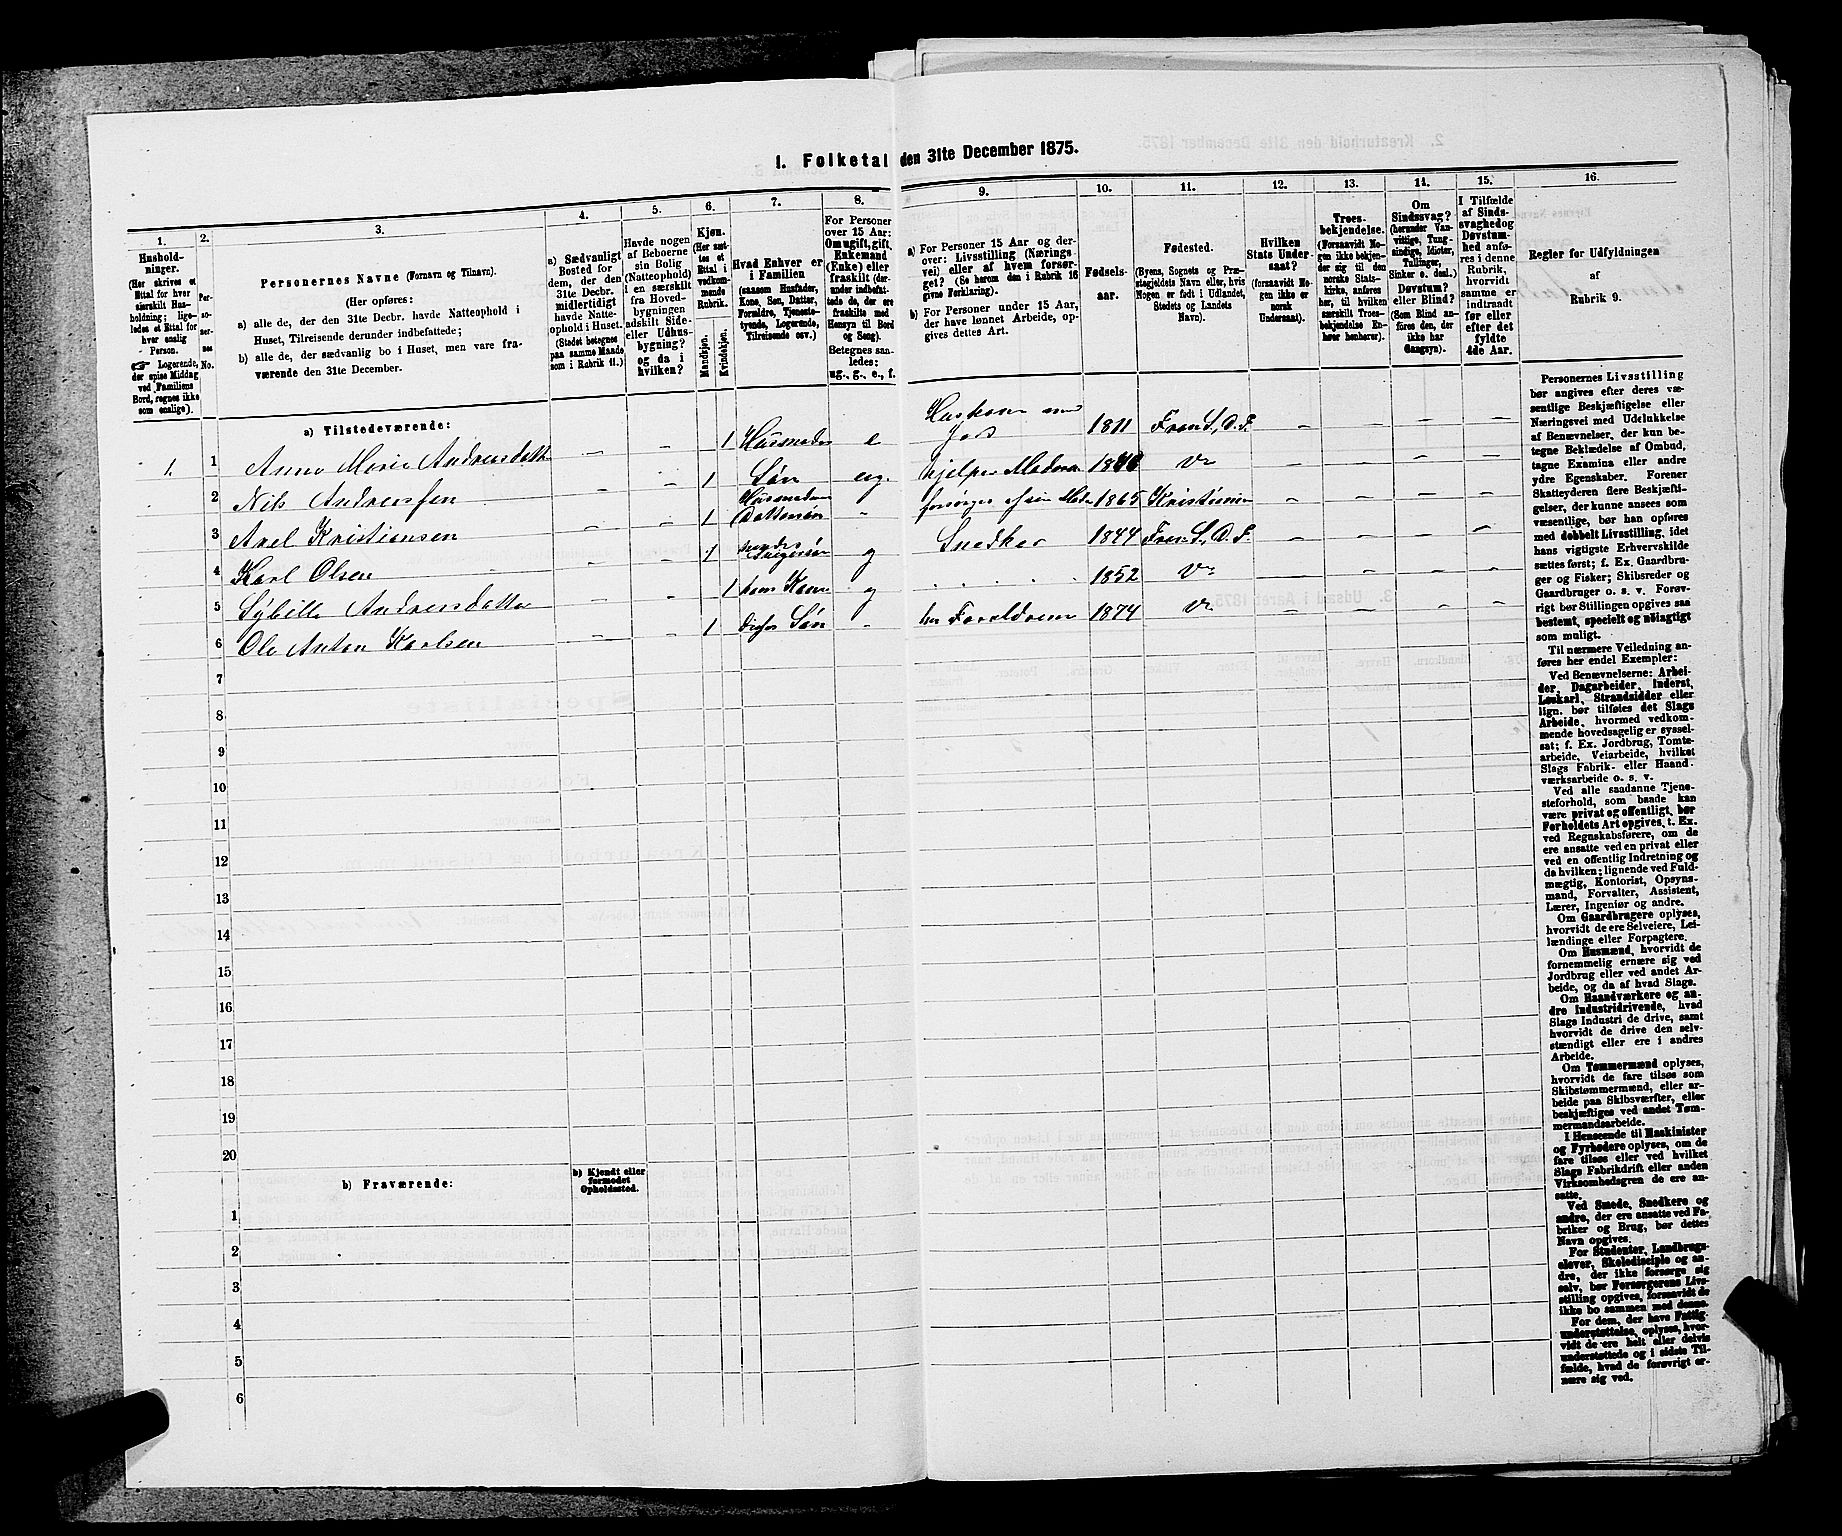 1. Folketal den 31te December 1875.
1.
Hushold-
ninger.
(Her skrives et
Ettal for hver
særskilt Hus-
holdning; lige-
ledes et Ettal for
hver enslig
Person.
☞ Logerende,
der spise Middag
ved Familiens
Bord, regnes ikke
som enslige).
2.
Per-
so-
ner-
nes
No.
3.
Personernes Navne (Fornavn og Tilnavn).
(Her opføres:
a) alle de, der den 31te Decbr. havde Natteophold i
Huset, Tilreisende derunder indbefattede;
b) alle de, der sædvanlig bo i Huset, men vare fra-
værende den 31te December.
4.
a) Sædvanligt
Bosted for
dem, der den
31te Decbr.
midlertidigt
havde Natte-
ophold i Huset.
(Stedet betegnes
paa samme Maade
som i Rubrik 11.)
5.
Havde nogen
af Beboerne
sin Bolig
(Natteophold)
i en særskilt
fra Hoved-
bygningen
adskilt Side-
eller Udhus-
bygning?
og da i
hvilken?
6.
Kjøn.
(Her sæt-
tes et
Ettal i
vedkom-
mende
Rubrik.
Mandkjøn.
Kvindekjøn.
7.
Hvad Enhver er
i Familien
(saasom Husfader,
Kone, Søn, Datter,
Forældre, Tjeneste-
tyende, Logerende,
Tilreisende osv.)
8.
For Personer
over 15 Aar:
Om ugift, gift,
Enkemand
(Enke) eller
fraskilt (der-
under indbefat-
tede de, der ere
fraskilte med
Hensyn til Bord
og Seng).
Betegnes saa-
ledes:
ug., g., e., f.
9.
a) For Personer 15 Aar og der-
over: Livsstilling (Nærings-
vei) eller af hvem forsør-
get? (Se herom den i Rubrik 16
givne Forklaring).
b) For Personer under 15 Aar,
der have lønnet Arbeide, op-
gives dettes Art.
10.
Fødsels-
aar.
11.
Fødested.
(Byens, Sognets og Præ-
stegjeldets Navn eller, hvis
Nogen er født i Udlandet,
Stedets og Landets
Navn).
12.
Hvilken
Stats Under-
saat?
(forsaavidt No-
gen ikke er
norsk
Undersaat).
13.
Troes-
bekjendelse.
(Forsaavidt No-
gen ikke bekjen-
der sig til den
norske Stats-
kirke, anføres
her, til hvilken
særskilt Troes-
bekjendelse En-
hver henhører).
14.
Om
Sindssvag?
(herunder Van-
vittige, Tung-
sindige, Idioter,
Tullinger,
Sinker o. desl.)
Døvstum?
eller Blind?
(Som Blind an-
føres den, der
ikke har
Gangsyn).
15.
I Tilfælde
af Sinds-
svaghed og
Døvstum-
hed anfø-
res i denne
Rubrik,
hvorvidt
samme er
indtraadt
før eller
efter det
fyldte
4de Aar.
16.
Regler for Udfyldningen
af
Rubrik 9.
a) Tilstedeværende:
1. 1 Anne Marie Andreasdatter — — 1 Husmoder e Huskone med Jord 1811 Fron S., O. F. — — — —
2 Nils Andreasen — — 1 Søn ug. hjelper Moderen 18 Do — — — —
3 Axel Kristiansen — — 1 Husmoderens Dattersøn - forsørges af sin 1865 Kristiania — — — —
4 Karl Olsen — — 1 Svigersøn g Snedker 1844 Fron S., O. F. — — — —
5 Sybille Andreasdatter — — 1 hans Kone g 1852 Do — — — —
6 Ole Anton Karlsen — — 1 deres Søn - hos Forældrene 1874 Do — — — —
7
8
9
10
11
12
13
14
15
16
17
18
19
20
b) Fraværende:
b) Kjendt eller
formodet
Opholdssted.
1
2
3
4
5
6
Personernes Livsstilling
bør angives efter deres væ-
sentlige Beskjæftigelse eller
Næringsvei med Udelukkelse
af Benævnelser, der kun be-
tegne Beklædelse af Ombud,
tagne Examina eller andre
ydre Egenskaber. Forener
Skatteyderen flere Beskjæfti-
gelser, der kunne ansees som
væsentlige, bør han opføres
med dobbelt Livsstilling, idet
hans vigtigste Erhvervskilde
sættes først; f. Ex. Gaardbru-
ger og Fisker; Skibsreder og
Gaardbruger o. s. v. Forøv-
rigt bør Stillingen opgives saa
bestemt, specielt og nøiagtigt
som muligt.
Til nærmere Veiledning an-
føres her endel Exempler:
Ved Benævnelserne: Arbei-
der, Dagarbeider, Inderst,
Løskarl, Strandsidder eller
lign. bør tilføies det Slags
Arbeide, hvormed vedkom-
mende hovedsagelig er syssel-
sat; f. Ex. Jordbrug, Tomte-
arbeide, Veiarbeide, hvilket
Slags Fabrik- eller Haand-
værksarbeide o. s. v.
Ved alle saadanne Tjene-
steforhold, som baade kan
være privat og offentligt, bør
Forholdets Art opgives, t. Ex.
ved Regnskabsførere, om de
ere ansatte ved en privat eller
ved en offentlig Indretning og
da hvilken; lignende ved Fuld-
mægtig, Kontorist, Opsyns-
mand, Forvalter, Assistent,
Lærer, Ingeniør og andre.
Om Gaardbrugere oplyses,
hvorvidt de ere Selveiere, Lei-
lændinge eller Forpagtere.
Om Husmænd, hvorvidt de
fornemmelig ernære sig ved
Jordbrug eller ved andet Ar-
beide, og da af hvad Slags.
Om Haandværkere og an-
dre Industridrivende, hvad
Slags Industri de drive, samt
hvorvidt de drive den selv-
stændigt eller ere i andres
Arbeide.
Om Tømmermænd oplyses,
hvorvidt de fare tilsøs som
Skibstømmermænd, eller ar-
beide paa Skibsværfter, eller
beskjæftiges ved andet Tøm-
mermandsarbeide.
I Henseende til Maskinister
og Fyrbødere oplyses, om de
fare tilsøs eller ved hvilket
Slags Fabrikdrift eller anden
Virksomhedsgren de ere an-
satte.
Ved Smede, Snedkere og
andre, der ere ansatte ved Fa-
briker og Brug, bør dettes
Navn opgives.
For Studenter, Landbrugs-
elever, Skoledisciple og an-
dre, der ikke forsørge sig
selv, bør Forsørgerens Livs-
stilling opgives, forsaavidt de
ikke bo sammen med denne.
For dem, der have Fattig-
understøttelse, oplyses, hvor-
vidt de ere helt eller delvis
understøttede og i sidste Til-
fælde, hvad de forøvrigt er-
nære sig ved.